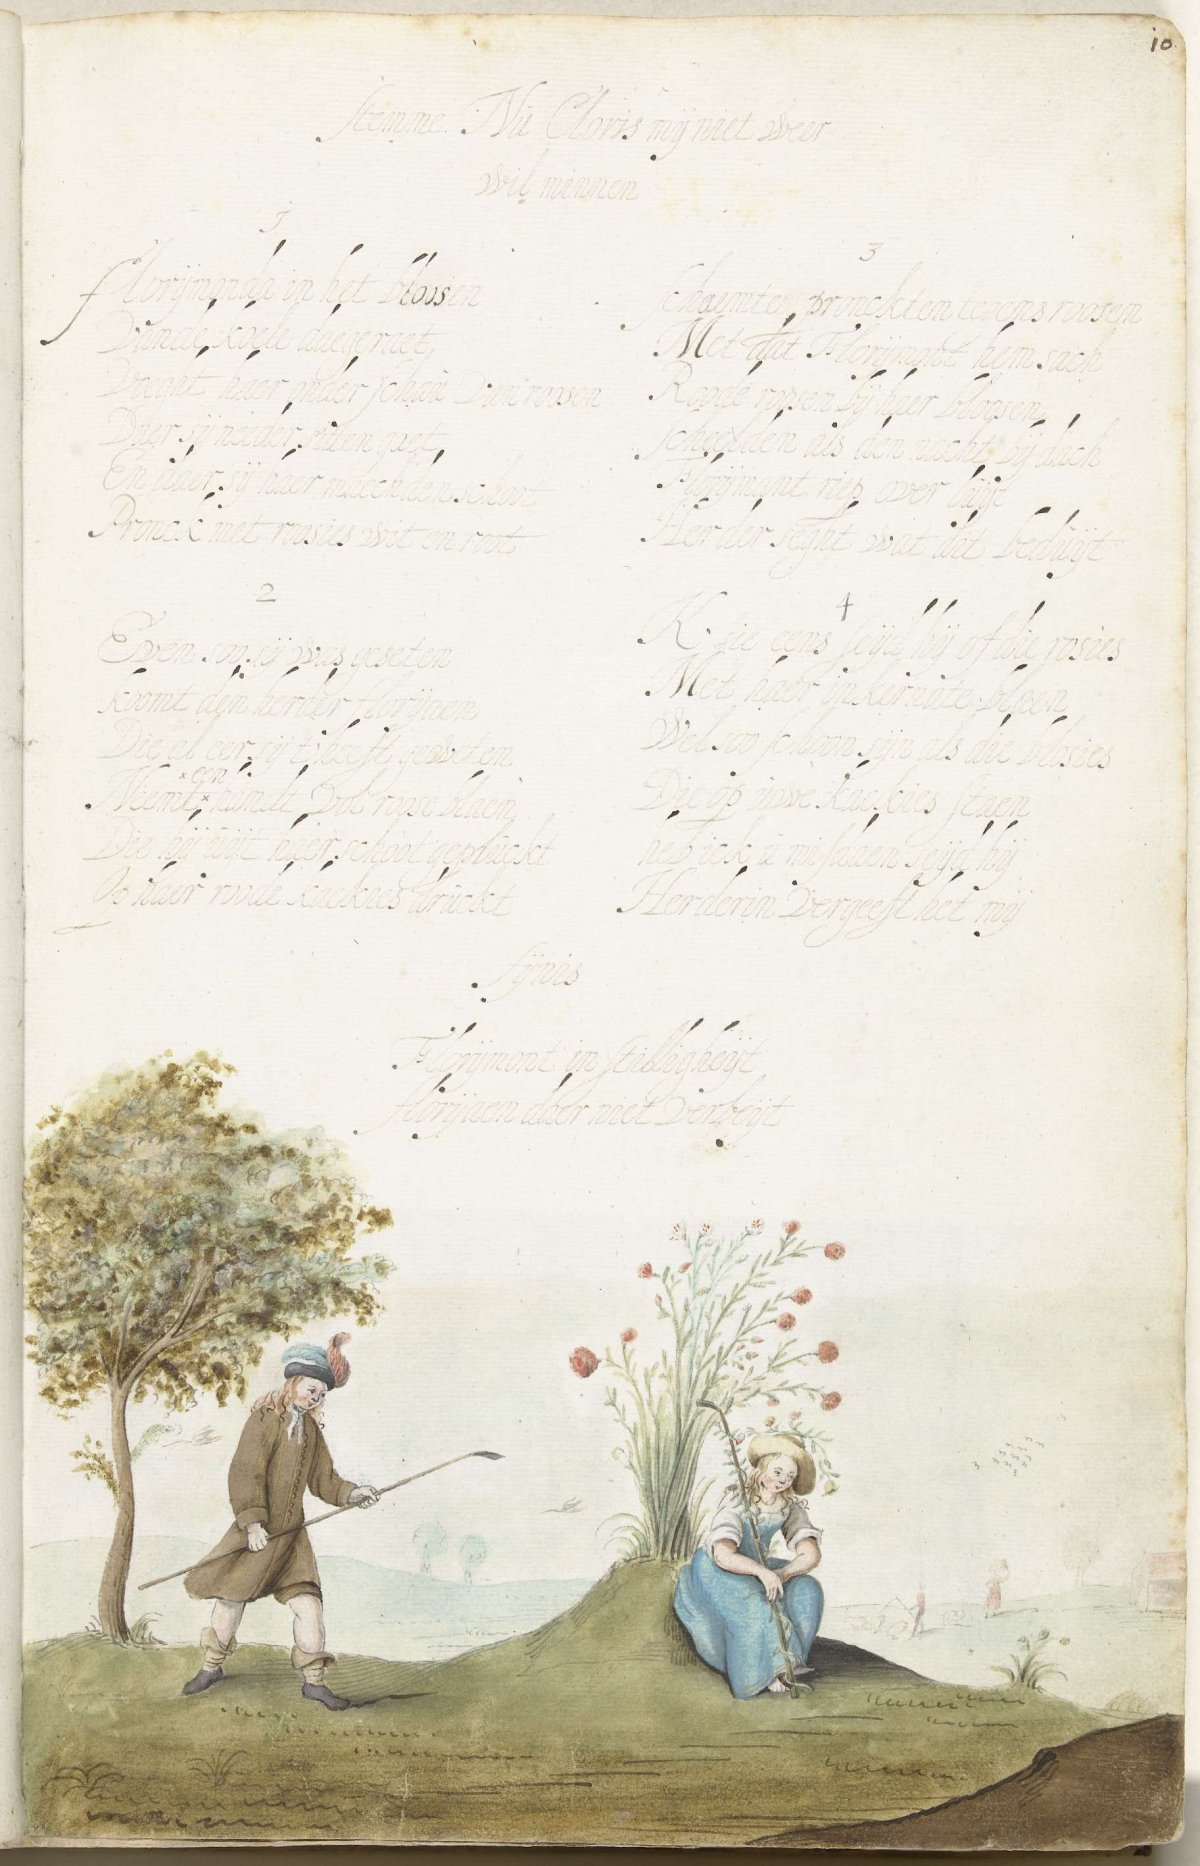 10
stemme. Nú Cloris mij niet weer
wil minnen
1
Florijmonda in het bloosen
Vande koele daegeraet,
Vught haer onder schaú van roosen
Daer sij needer sitten gaet,
En daer sij haer schoot
Pronck met roosies wit en root
2
Even son sij was geseten
komt den herder florijaen
Die al eer sij t heeft geweten
Neemt een handt vol roose blaen,
Die hij uijt haer schoot geplúckt
Op haer roode kaekies drúckt
3
schaemten pronckten teegens roosen
Met dat Florijmont hem sach
Roode roosen bij haer bloosen
scheelden als den nacht bij dach
Florijmont riep over luijt
Herder seght wat dat beduijt
4
K zie eens seijd hij of die rosies
Met haer inkernate blaen
Wel soo schoon sijn als die blosies
Die op uwe kaekies staen
heb ick ú misdaen seijd hij
Herderin vergeeft het mij
fijnis
Florijmont in stilligheijt
florijaen daer niet verbeijt